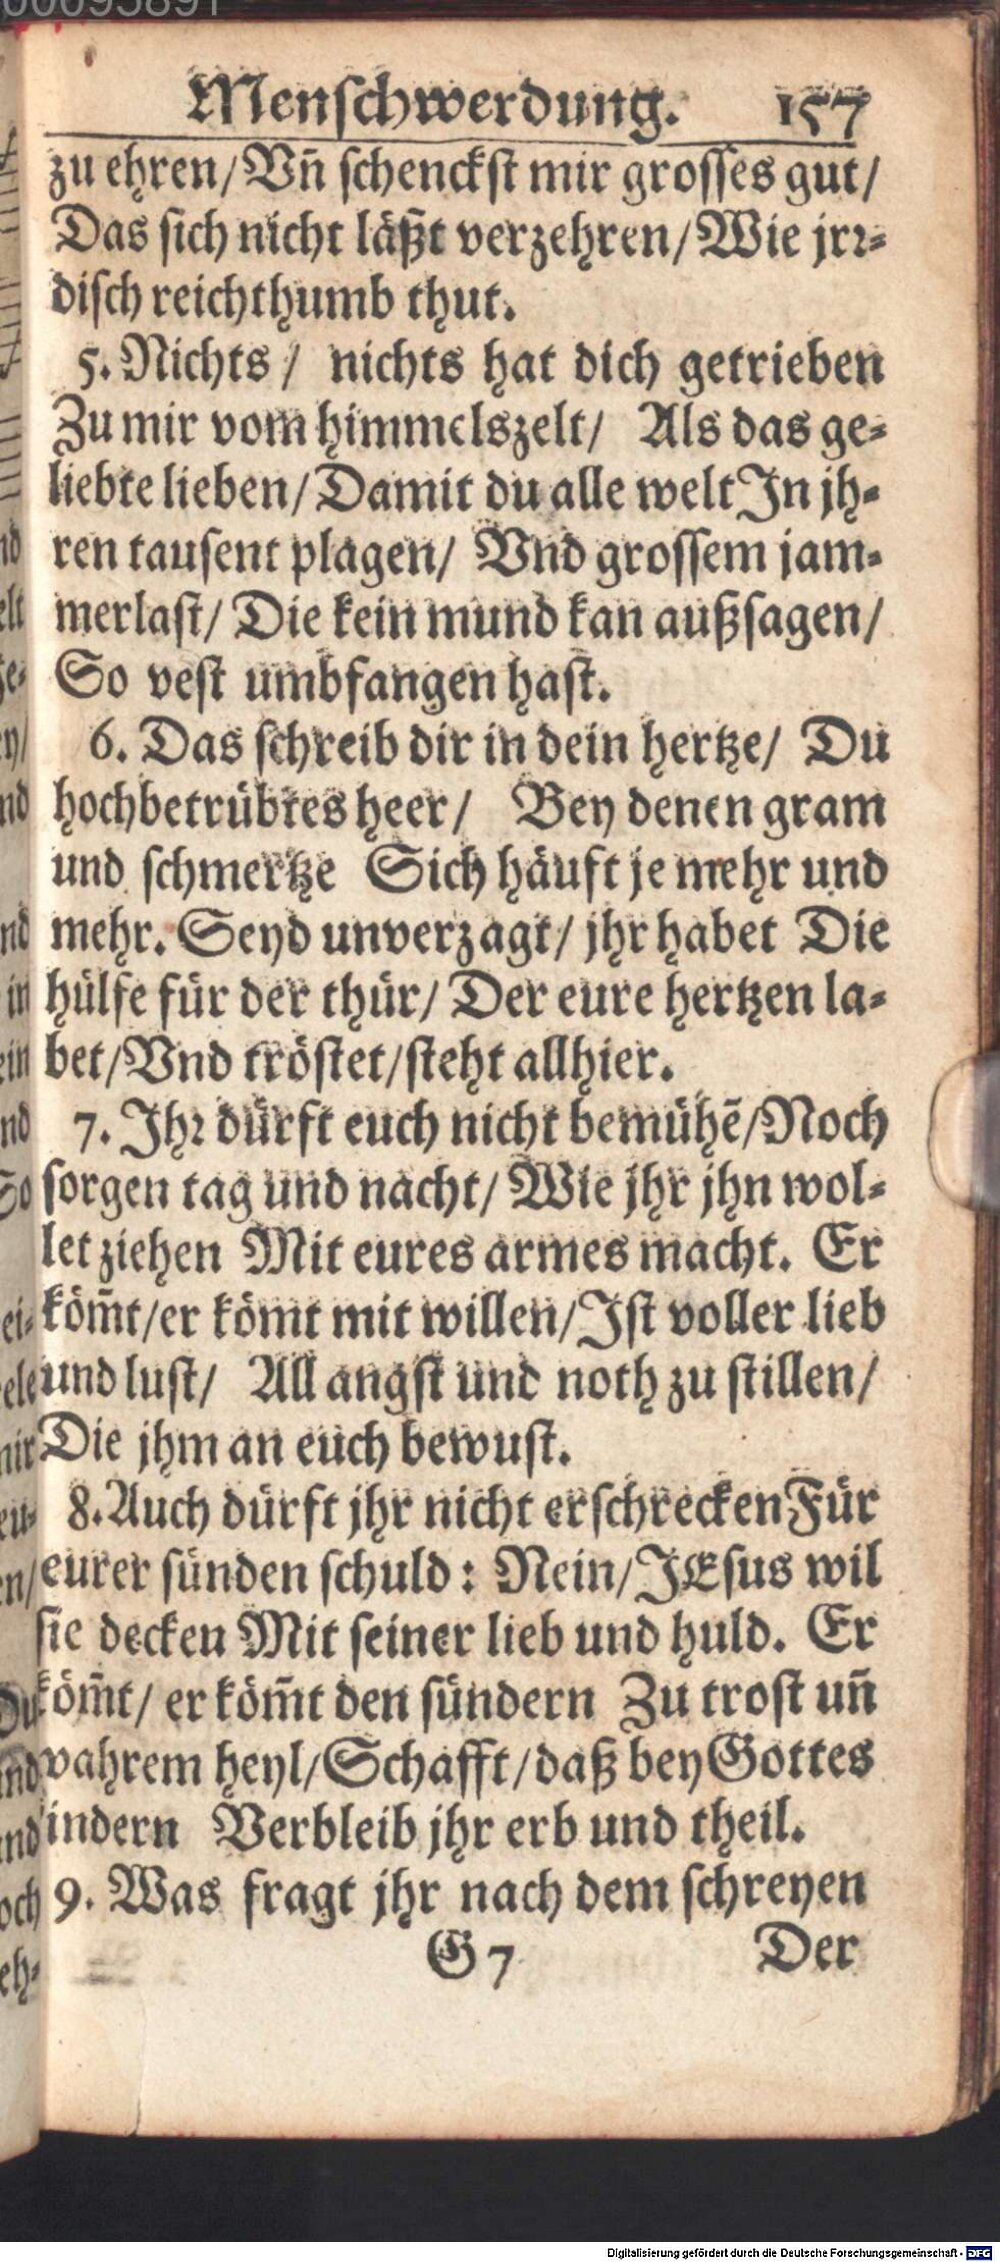 Menschwerdung. 157
zu ehren/Vn̄ schenckst mir grosses gut/
Das sich nicht läßt verzehren/Wie jrr-
disch reichthumb thut.
5. Nichts/ nichts hat dich getrieben
Zu mir vom himmelszelt/ Als das ge-
liebte lieben/Damit du alle welt In jh-
ren tausent plagen/ Vnd grossem jam-
merlast/ Die kein mund kan außsagen/
So vest umbfangen hast.
6. Das schreib dir in dein hertze/ Du
hochbetrübtes heer/ Bey denen gram
und schmertze Sich häuft je mehr und
mehr. Seyd unverzagt/ jhr habet Die
hülfe für der thür/ Der eure hertzen la-
bet/Vnd tröstet/steht allhier.
7. Ihr dürft euch nicht bemühē/Noch
sorgen tag und nacht/ Wie jhr jhn wol-
let ziehen Mit eures armes macht. Er
köm̄t/er kömt mit willen/Ist voller lieb
und lust/ All angst und noth zu stillen/
Die jhm an euch bewust.
8. Auch dürft jhr nicht erschrecken Für
eurer sünden schuld: Nein/JEsus wil
sie decken Mit seiner lieb und huld. Er
köm̄t/ er köm̄t den sündern Zu trost un̄
wahrem heyl/Schafft/daß bey Gottes
kindern Verbleib jhr erb und theil.
9. Was fragt jhr nach dem schreyen
G 7 Der
Digitalisierung gefördert durch die Deutsche Forschungsgemeinschaft - DFG